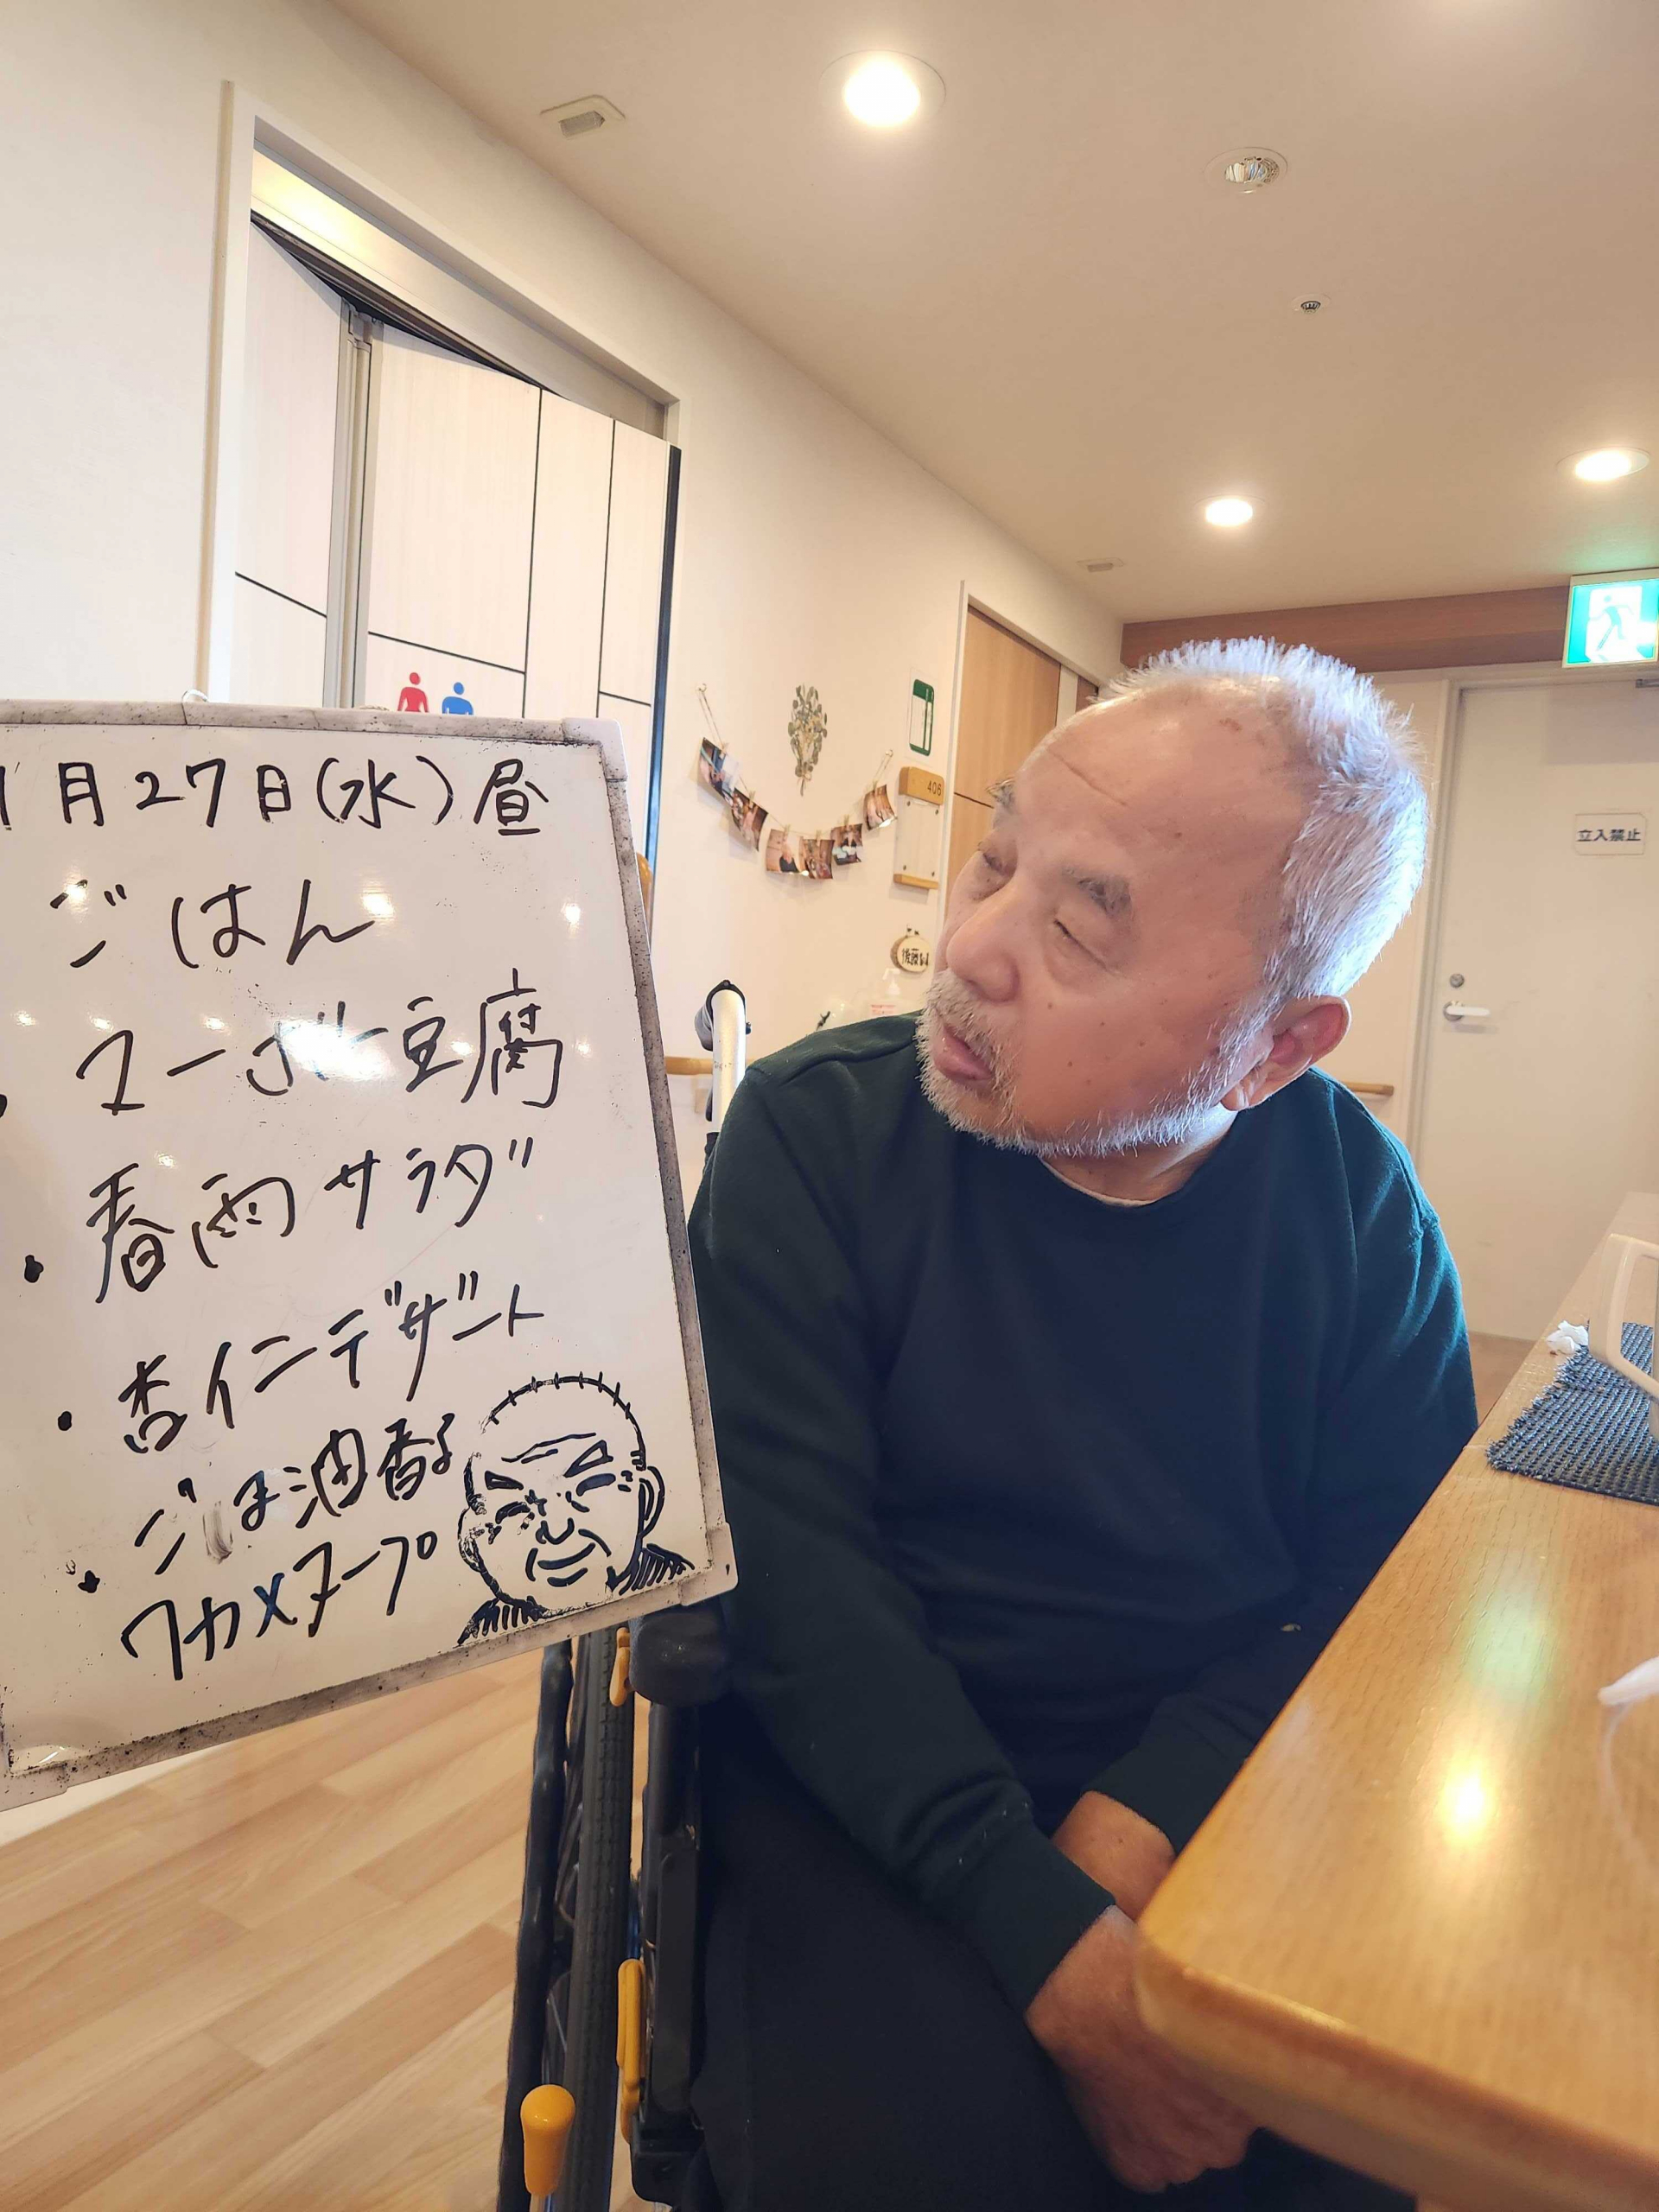 1月27日(水)昼
ごはん
・マーボー豆腐
・春雨サラダ
・杏仁デザート
・ごま油香る
ワカメスープ
406
立入禁止